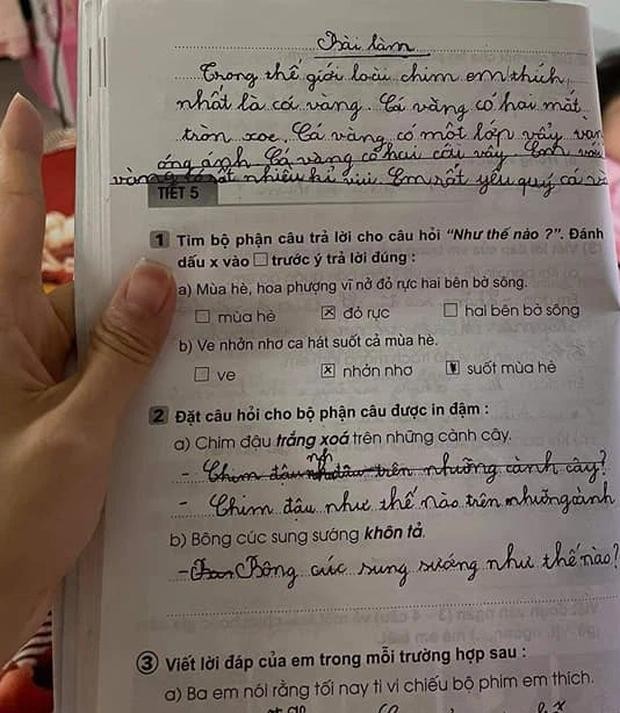 Bài làm
Trong thế giới loài chim em thích
nhất là cá vàng. Cá vàng có hai mắt
tròn xoe. Cá vàng có một lớp vảy vàng
óng ánh Cá vàng có hai cái vây Em
vàng rất nhiều khi vui. Em rất yêu quý cá
TIẾT 5
1 Tìm bộ phận câu trả lời cho câu hỏi "Như thế nào ?". Đánh
dấu x vào □ trước ý trả lời đúng :
a) Mùa hè, hoa phượng vĩ nở đỏ rực hai bên bờ sông.
□ mùa hè ☒ đỏ rực □ hai bên bờ sông
b) Ve nhởn nhơ ca hát suốt cả mùa hè.
□ ve ☒ nhởn nhơ ☒ suốt mùa hè
2 Đặt câu hỏi cho bộ phận câu được in đậm :
a) Chim đậu trắng xoá trên những cành cây.
- Chim đậu như đâu trên những cành cây?
- Chim đậu như thế nào trên những cành
b) Bông cúc sung sướng khôn tả.
- Bông cúc sung sướng như thế nào?
3 Viết lời đáp của em trong mỗi trường hợp sau :
a) Ba em nói rằng tối nay ti vi chiếu bộ phim em thích.